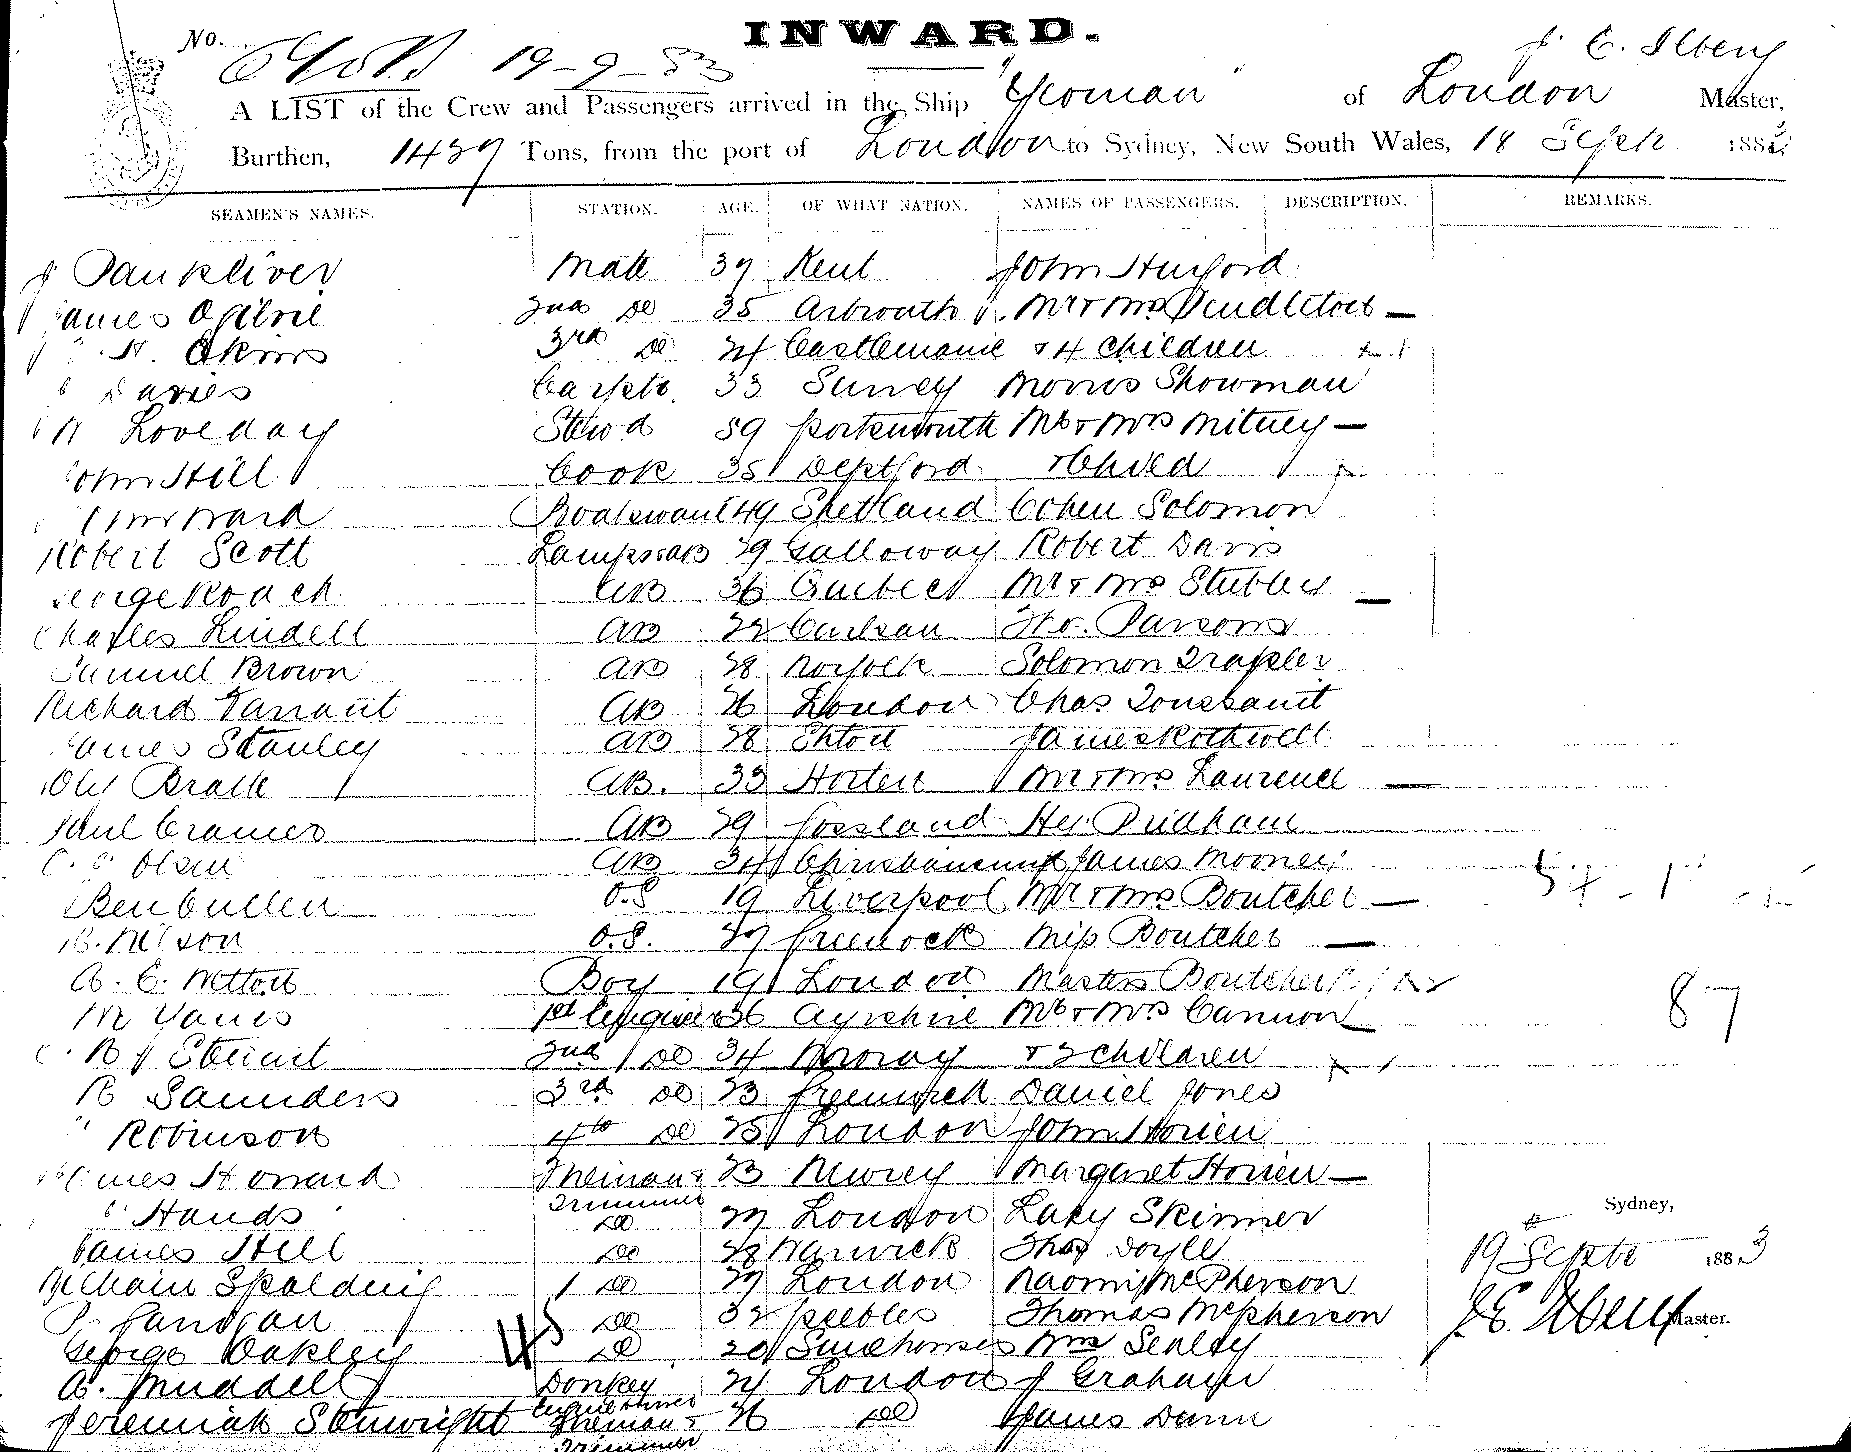 INWARD.
No. 19-9-83
J. E. Ilbery
A LIST of the Crew and Passengers arrived in the Ship "Yeoman" of London Master,
Burthen, 1437 Tons, from the port of London to Sydney, New South Wales, 18 Septr 1883
SEAMEN'S NAMES. STATION. AGE. OF WHAT NATION. NAMES OF PASSENGERS. DESCRIPTION. REMARKS.
J Pankliver Mate 37 Kent John Hurford
James Ogilvie 2nd Do 35 Arbroath Mr & Mrs Pendleton —
H. Akins 3rd Do 24 Castlemaine & 4 children
Davies Carptr. 33 Surrey Morris Showman
W Loveday Stewd 39 Portsmouth Mr & Mrs Mitney —
John Hill Cook 35 Deptford & Child
Ward Boatswain 49 Shetland Cohen Solomon
Robert Scott Lamps & AB 29 Galloway Robert Davis
George Roach AB 36 Quebec Mr & Mrs Stubley —
Charles Lindell AB 22 Parsons
Samuel Brown AB 28 Norfolk Solomon Trapler
Richard Tarrant AB 26 London Chas Toussaint
James Stanley AB 28 James Rothwell
Brath AB. 33 Horten Mr & Mrs Laurence —
Paul Cramer AB 29 Hy. Pridham
Olsen AB 34 James Mooney
Ben Cullen O.S 19 Liverpool Mr & Mrs Boutcher —
R. Nelson O.S. 27 Greenock Miss Boutcher —
A. E. Netton Boy 19 London Masters Boutcher
87
M 1st Engineer 36 Ayrshire Mr & Mrs Cannon —
R J Stuart 2nd Do 34 Moray & 2 children
R Saunders 3rd Do 23 Greenwich Daniel Jones
" Robinson 4th Do 25 London John Horien
James Howard Fireman & Trimmer 23 Newry Margaret Horien —
Sydney,
Hands Do 27 London Lazy Skinner
James Hill Do 28 Warwick Thos Doyle
19 Septr 1883
William Spalding Do 27 London Naomi McPherson
Do 32 Peebles Thomas McPherson
J. E. Ilbery Master.
George Oakley Do 20 Limehouse Mrs Sealey
45
A. Muddell Donkey Engine Driver 24 London J Graham
Jeremiah Stenwright Fireman & Trimmer 26 Do James Dunn